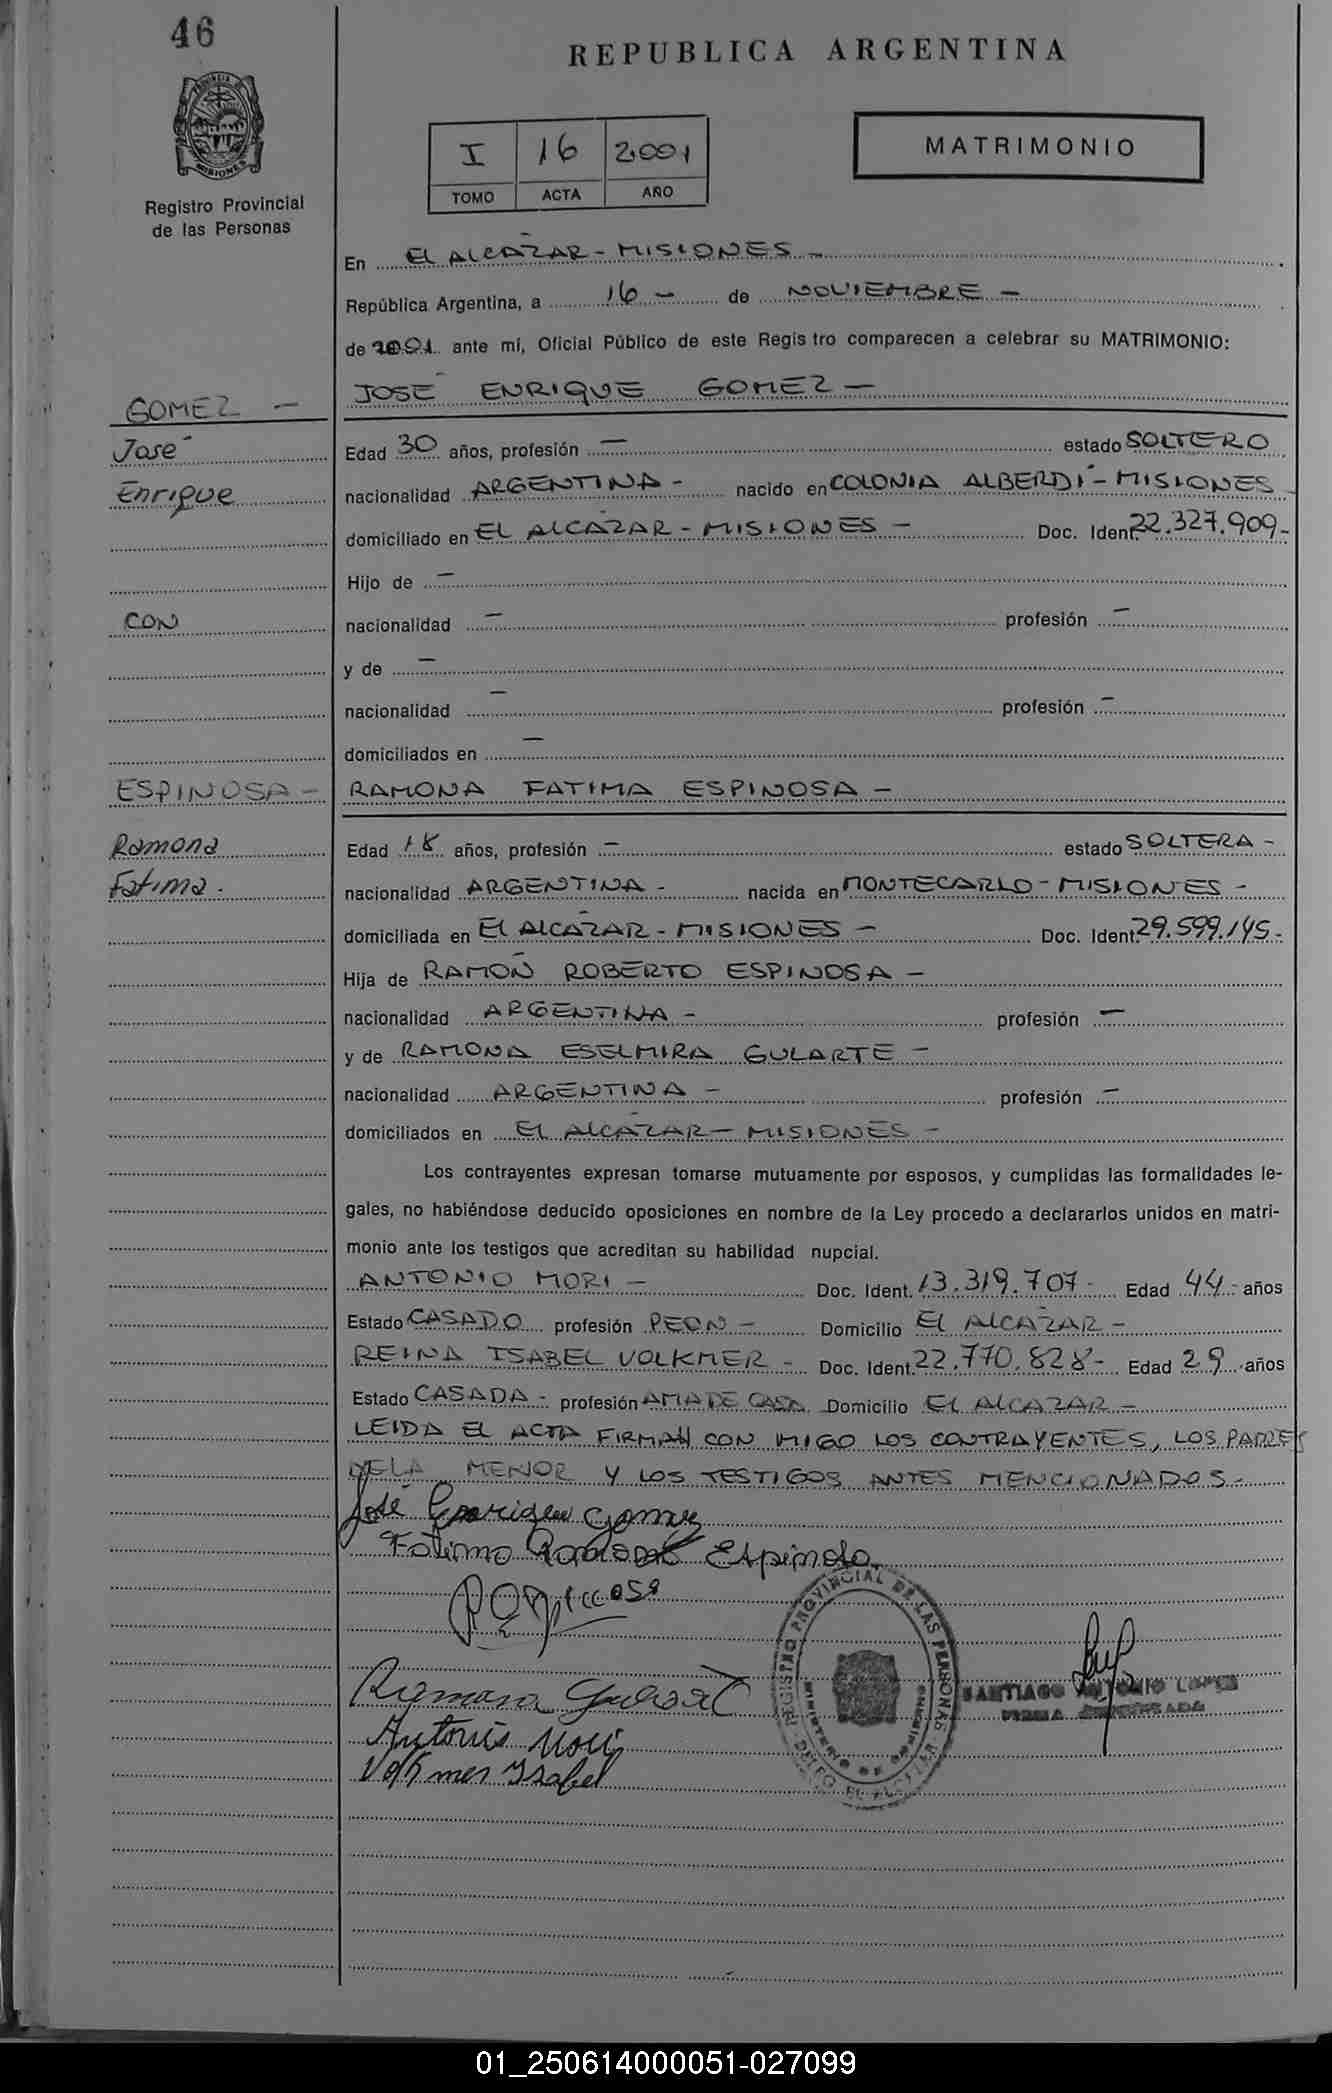 46
REPUBLICA ARGENTINA
I 16 2001
TOMO ACTA AÑO
MATRIMONIO
PROVINCIA DE MISIONES
Registro Provincial
de las Personas
En EL ALCÁZAR - MISIONES -
República Argentina, a 16 - de NOVIEMBRE -
de 2001 ante mí, Oficial Público de este Regis tro comparecen a celebrar su MATRIMONIO:
GOMEZ - JOSÉ ENRIQUE GOMEZ -
José Edad 30 años, profesión - estado SOLTERO
Enrique nacionalidad ARGENTINA - nacido en COLONIA ALBERDI - MISIONES -
domiciliado en EL ALCÁZAR - MISIONES - Doc. Ident. 22.327.909-
Hijo de -
CON nacionalidad - profesión -
y de -
nacionalidad - profesión -
domiciliados en -
ESPINOSA - RAMONA FATIMA ESPINOSA -
Ramona Edad 18 años, profesión - estado SOLTERA -
Fatima. nacionalidad ARGENTINA - nacida en MONTECARLO - MISIONES -
domiciliada en EL ALCÁZAR - MISIONES - Doc. Ident. 29.599.145-
Hija de RAMÓN ROBERTO ESPINOSA -
nacionalidad ARGENTINA - profesión -
y de RAMONA ESELMIRA GULARTE -
nacionalidad ARGENTINA - profesión -
domiciliados en EL ALCÁZAR - MISIONES -
Los contrayentes expresan tomarse mutuamente por esposos, y cumplidas las formalidades le-
gales, no habiéndose deducido oposiciones en nombre de la Ley procedo a declararlos unidos en matri-
monio ante los testigos que acreditan su habilidad nupcial.
ANTONIO MORI - Doc. Ident. 13.319.707- Edad 44- años
Estado CASADO profesión PEON - Domicilio EL ALCÁZAR -
REINA ISABEL VOLKMER - Doc. Ident. 22.770.828- Edad 29 años
Estado CASADA - profesión AMA DE CASA Domicilio EL ALCAZAR -
LEIDA EL ACTA FIRMAN CON MIGO LOS CONTRAYENTES, LOS PADRES
DE LA MENOR Y LOS TESTIGOS ANTES MENCIONADOS -
José Enrique Gomez
Fatima Ramona Espinosa
Ramona
Antonio Mori
Volkmer Isabel
REGISTRO PROVINCIAL DE LAS PERSONAS
MINISTERIO DE GOBIERNO
SANTIAGO ANTONIO LOPEZ
FIRMA AUTORIZADA
01_250614000051-027099